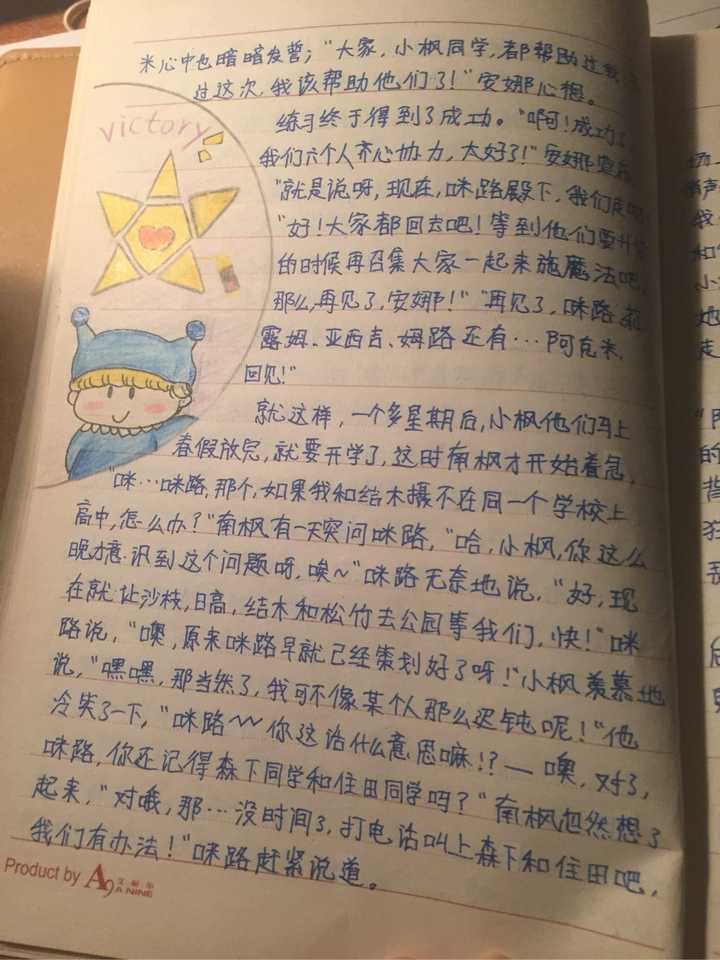 米心中也暗暗发誓；“大家，小枫同学，都帮助过我，
过这次，我该帮助他们了！”安娜心想。
victory
练习终于得到了成功。“啊！成功了
我们六个人齐心协力，太好了！”安娜
“就是说呀，现在，咪路殿下，我们
“好！大家都回去吧！等到他们要升
的时候再召集大家一起来施魔法吧，
那么，再见了，安娜！”“再见了，咪路，
露姆、亚西吉、姆路还有…阿克米，
回见！”
就这样，一个多星期后，小枫他们马上
春假放完，就要开学了，这时南枫才开始着急，
“咪…咪路，那个，如果我和结木摄不在同一个学校上
高中，怎么办？”南枫有一天突问咪路，“哈，小枫，你这么
晚才意识到这个问题呀，唉~”咪路无奈地说，“好，现
在就让沙枝，日高，结木和松竹去公园等我们，快！”咪
路说，“噢，原来咪路早就已经策划好了呀！”小枫羡慕地
说，“嘿嘿，那当然了，我可不像某个人那么迟钝呢！”他
冷笑了一下，“咪路~~你这话什么意思嘛！？—噢，对了，
咪路，你还记得森下同学和住田同学吗？”南枫忽然想了
起来，“对哦，那…没时间了，打电话叫上森下和住田吧，
我们有办法！”咪路赶紧说道。
Product by A9 艾耐尔 A NINE